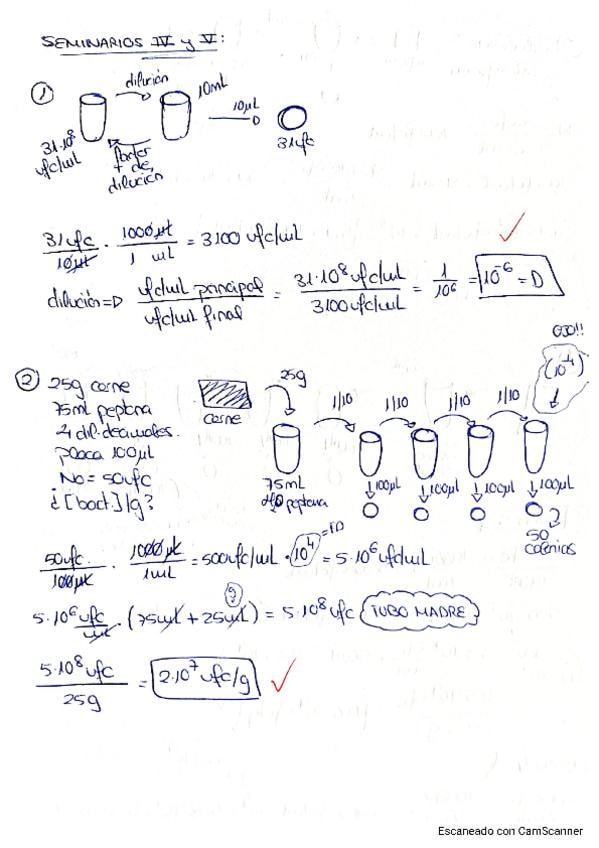 SEMINARIOS IV y V:
1
dilución
10mL
10µL
31·10⁸
ufc/mL
factor
de
dilución
31ufc
31ufc / 10µL · 1000µL / 1 mL = 3100 ufc/mL
dilución => ufc/mL principal / ufc/mL final = 31·10⁸ ufc/mL / 3100 ufc/mL = 1/10⁶ = 10⁻⁶ = D
OJO!!
2 25g carne
75ml peptona
4 dil. decimales.
placa 100µl
No = 50ufc
¿[bact.]/g?
carne
25g
1/10 1/10 1/10 1/10
(10⁻⁴)
75mL
H₂O peptona
100µL 100µL 100µL 100µL
50
colonias
50ufc / 100µL · 1000µL / 1mL = 500ufc/mL · 10⁴ = 5·10⁶ ufc/mL
=FD
g
5·10⁶ ufc/mL · (75mL + 25mL) = 5·10⁸ ufc (TUBO MADRE)
5·10⁸ ufc / 25g = 2·10⁷ ufc/g
Escaneado con CamScanner